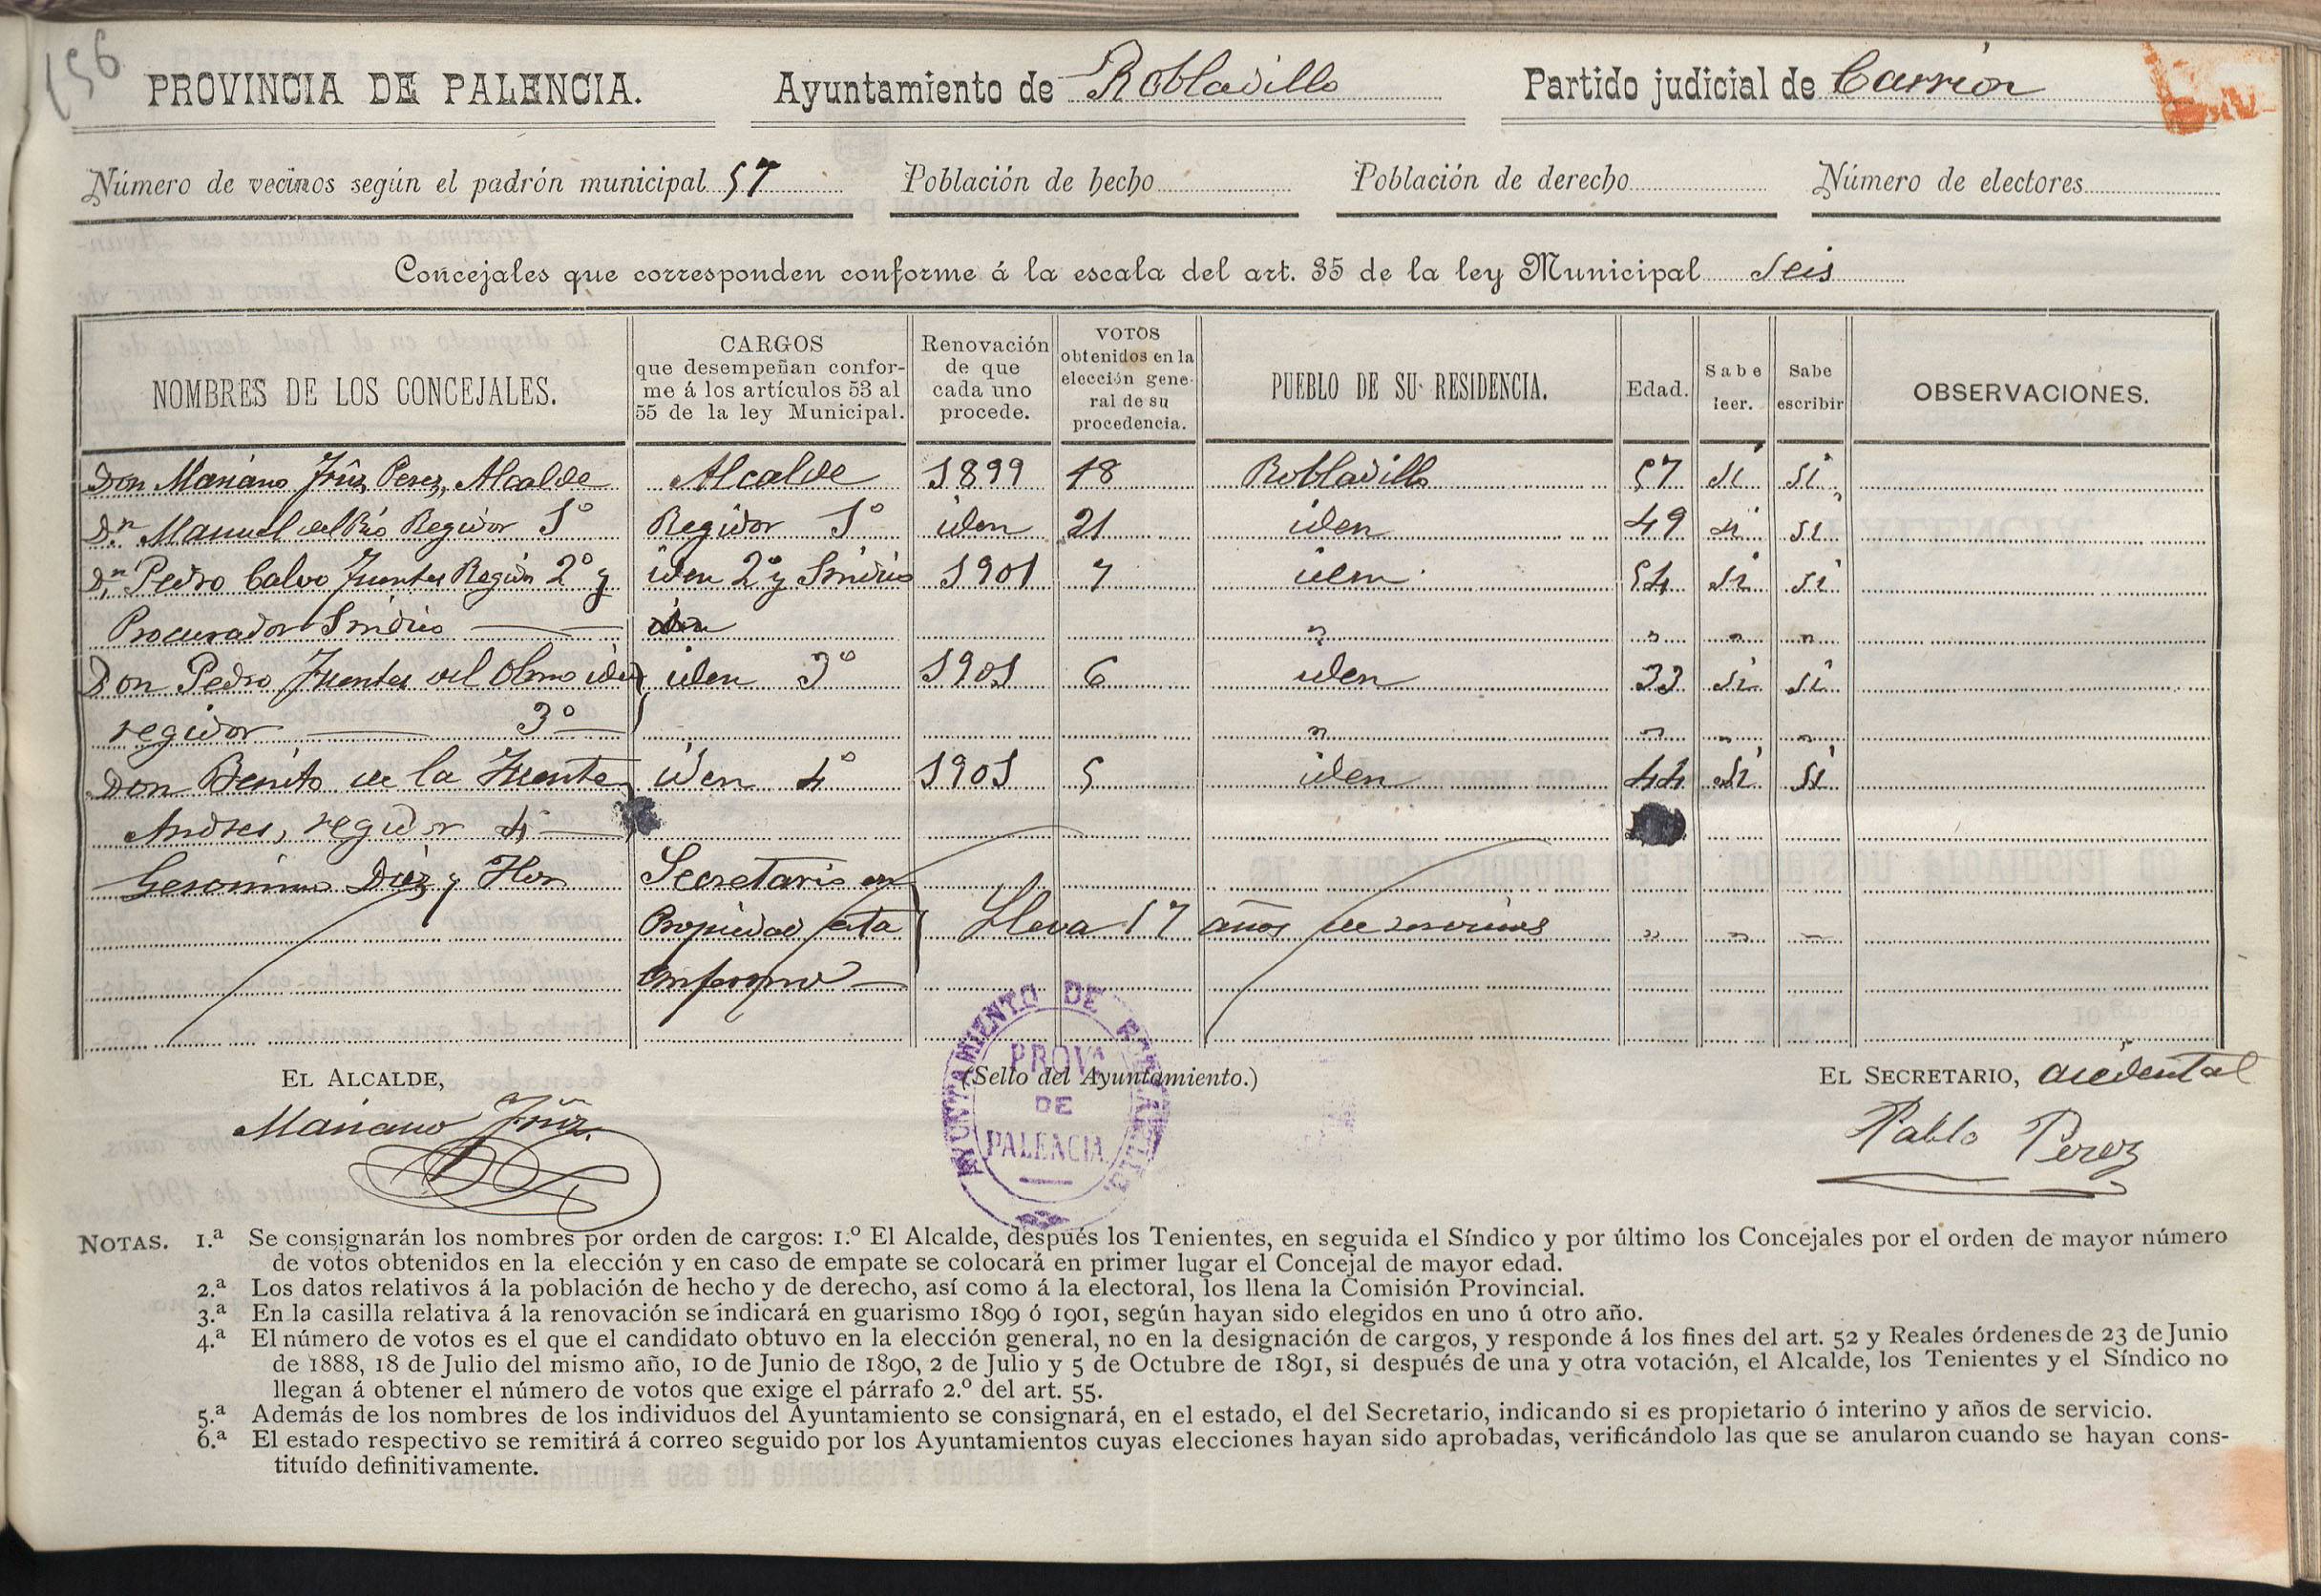 156
PROVINCIA DE PALENCIA. Ayuntamiento de Robladillo Partido judicial de Carrión
Número de vecinos según el padrón municipal 57 Población de hecho Población de derecho Número de electores
Concejales que corresponden conforme á la escala del art. 35 de la ley Municipal Seis
NOMBRES DE LOS CONCEJALES. CARGOS que desempeñan confor-me á los artículos 53 al 55 de la ley Municipal. Renovación de que cada uno procede. VOTOS obtenidos en la elección gene-ral de su procedencia. PUEBLO DE SU RESIDENCIA. Edad. Sabe leer. Sabe escribir OBSERVACIONES.
Don Mariano Perez, Alcalde Alcalde 1899 18 Robladillo 57 si si
Dn Manuel del Rio Regidor 1º Regidor 1º iden 21 iden 49 si si
Dn Pedro Calvo Fuentes Regidor 2º y iden 2º y Sindico 1901 7 iden 54 si si
Procurador Sindico — " " " "
Don Pedro Fuentes del Olmo iden iden 3º 1901 6 iden 33 si si
regidor — 3º — " " " "
Don Benito de la Fuente iden 4º 1901 5 iden 44 si si
Andres, regidor 4 —
Geronimo Diez y Hor Secretario en
Propiedad esta Lleva 17 años de servicios " " "
enfermo —
EL ALCALDE, (Sello del Ayuntamiento.) EL SECRETARIO, acidental
Mariano Pablo Perez
AYUNTAMIENTO DE ROBLADILLO
PROVª
DE
PALENCIA
NOTAS. 1.ª Se consignarán los nombres por orden de cargos: 1.º El Alcalde, después los Tenientes, en seguida el Síndico y por último los Concejales por el orden de mayor número
de votos obtenidos en la elección y en caso de empate se colocará en primer lugar el Concejal de mayor edad.
2.ª Los datos relativos á la población de hecho y de derecho, así como á la electoral, los llena la Comisión Provincial.
3.ª En la casilla relativa á la renovación se indicará en guarismo 1899 ó 1901, según hayan sido elegidos en uno ú otro año.
4.ª El número de votos es el que el candidato obtuvo en la elección general, no en la designación de cargos, y responde á los fines del art. 52 y Reales órdenes de 23 de Junio
de 1888, 18 de Julio del mismo año, 10 de Junio de 1890, 2 de Julio y 5 de Octubre de 1891, si después de una y otra votación, el Alcalde, los Tenientes y el Síndico no
llegan á obtener el número de votos que exige el párrafo 2.º del art. 55.
5.ª Además de los nombres de los individuos del Ayuntamiento se consignará, en el estado, el del Secretario, indicando si es propietario ó interino y años de servicio.
6.ª El estado respectivo se remitirá á correo seguido por los Ayuntamientos cuyas elecciones hayan sido aprobadas, verificándolo las que se anularon cuando se hayan cons-
tituído definitivamente.